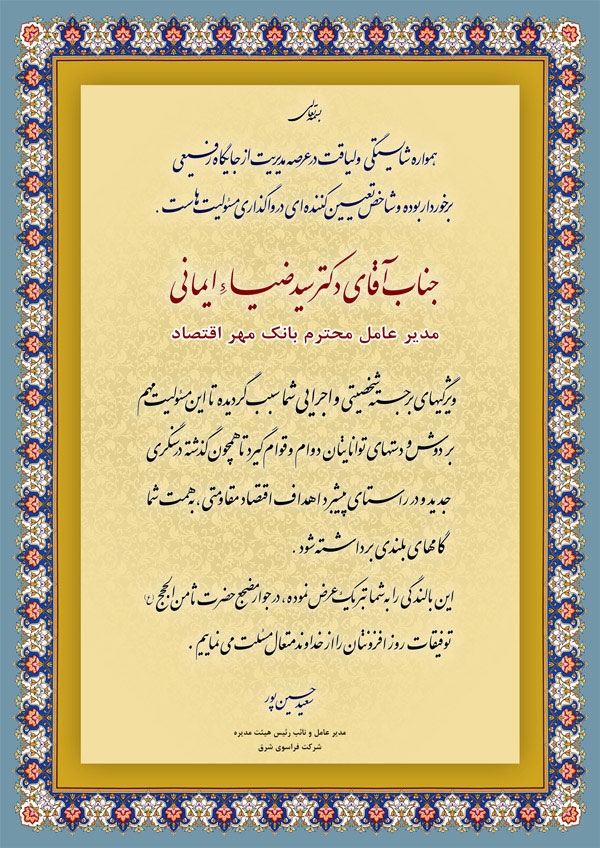 بسمه تعالی
همواره شایستگی و لیاقت در عرصه مدیریت از جایگاه رفیعی
برخوردار بوده و شاخص تعیین کننده ای در واگذاری مسئولیت هاست .
جناب آقای دکتر سید ضیاء ایمانی
مدیر عامل محترم بانک مهر اقتصاد
ویژگیهای برجسته شخصیتی و اجرایی شما سبب گردیده تا این مسئولیت مهم
بر دوش و دستهای توانایتان دوام و قوام گیرد تا همچون گذشته در سنگری
جدید و در راستای پیشبرد اهداف اقتصاد مقاومتی ، به همت شما
گامهای بلندی برداشته شود .
این بالندگی را به شما تبریک عرض نموده ، در جوار مضجع حضرت ثامن الحجج (ع)
توفیقات روز افزونتان را از خداوند متعال مسئلت می نماییم .
سعید حسین پور
مدیر عامل و نائب رئیس هیئت مدیره
شرکت فراسوی شرق